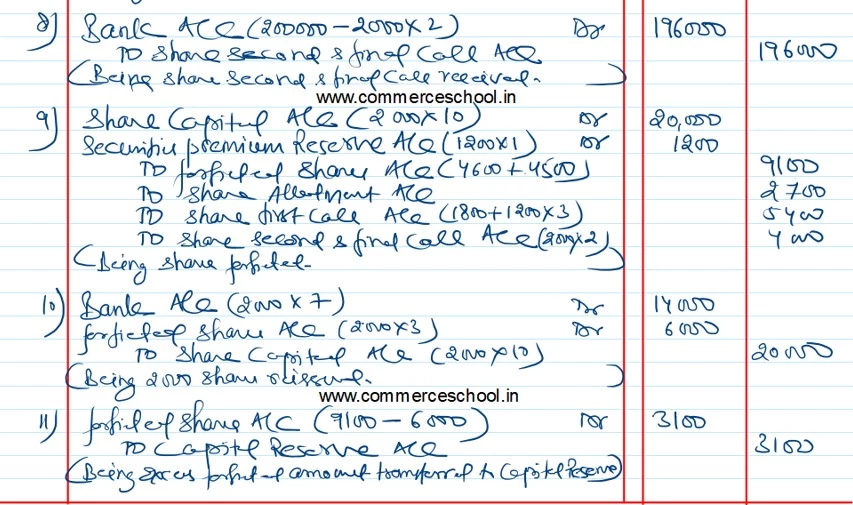 8) Bank A/c (200000 - 2000×2) Dr 196000
To Share second & final Call A/c 196000
(Being share second & final call received.
www.commerceschool.in
9) Share Capital A/c (2000×10) Dr 20,000
Securities premium Reserve A/c (1200×1) Dr 1200
To forfieted Shares A/c (4600+4500) 9100
To Share Allotment A/c 2700
To Share first Call A/c (1800+1200×3) 5400
To Share Second & final Call A/c (2000×2) 4000
(Being share forfieted.)
10) Bank A/c (2000×7) Dr 14000
forfieted share A/c (2000×3) Dr 6000
To Share Capital A/c (2000×10) 20000
(Being 2000 share reissued.)
www.commerceschool.in
11) forfieted Share A/C (9100-6000) Dr 3100
To Capital Reserve A/c 3100
(Being excess forfieted amount transferred to Capital Reserve)